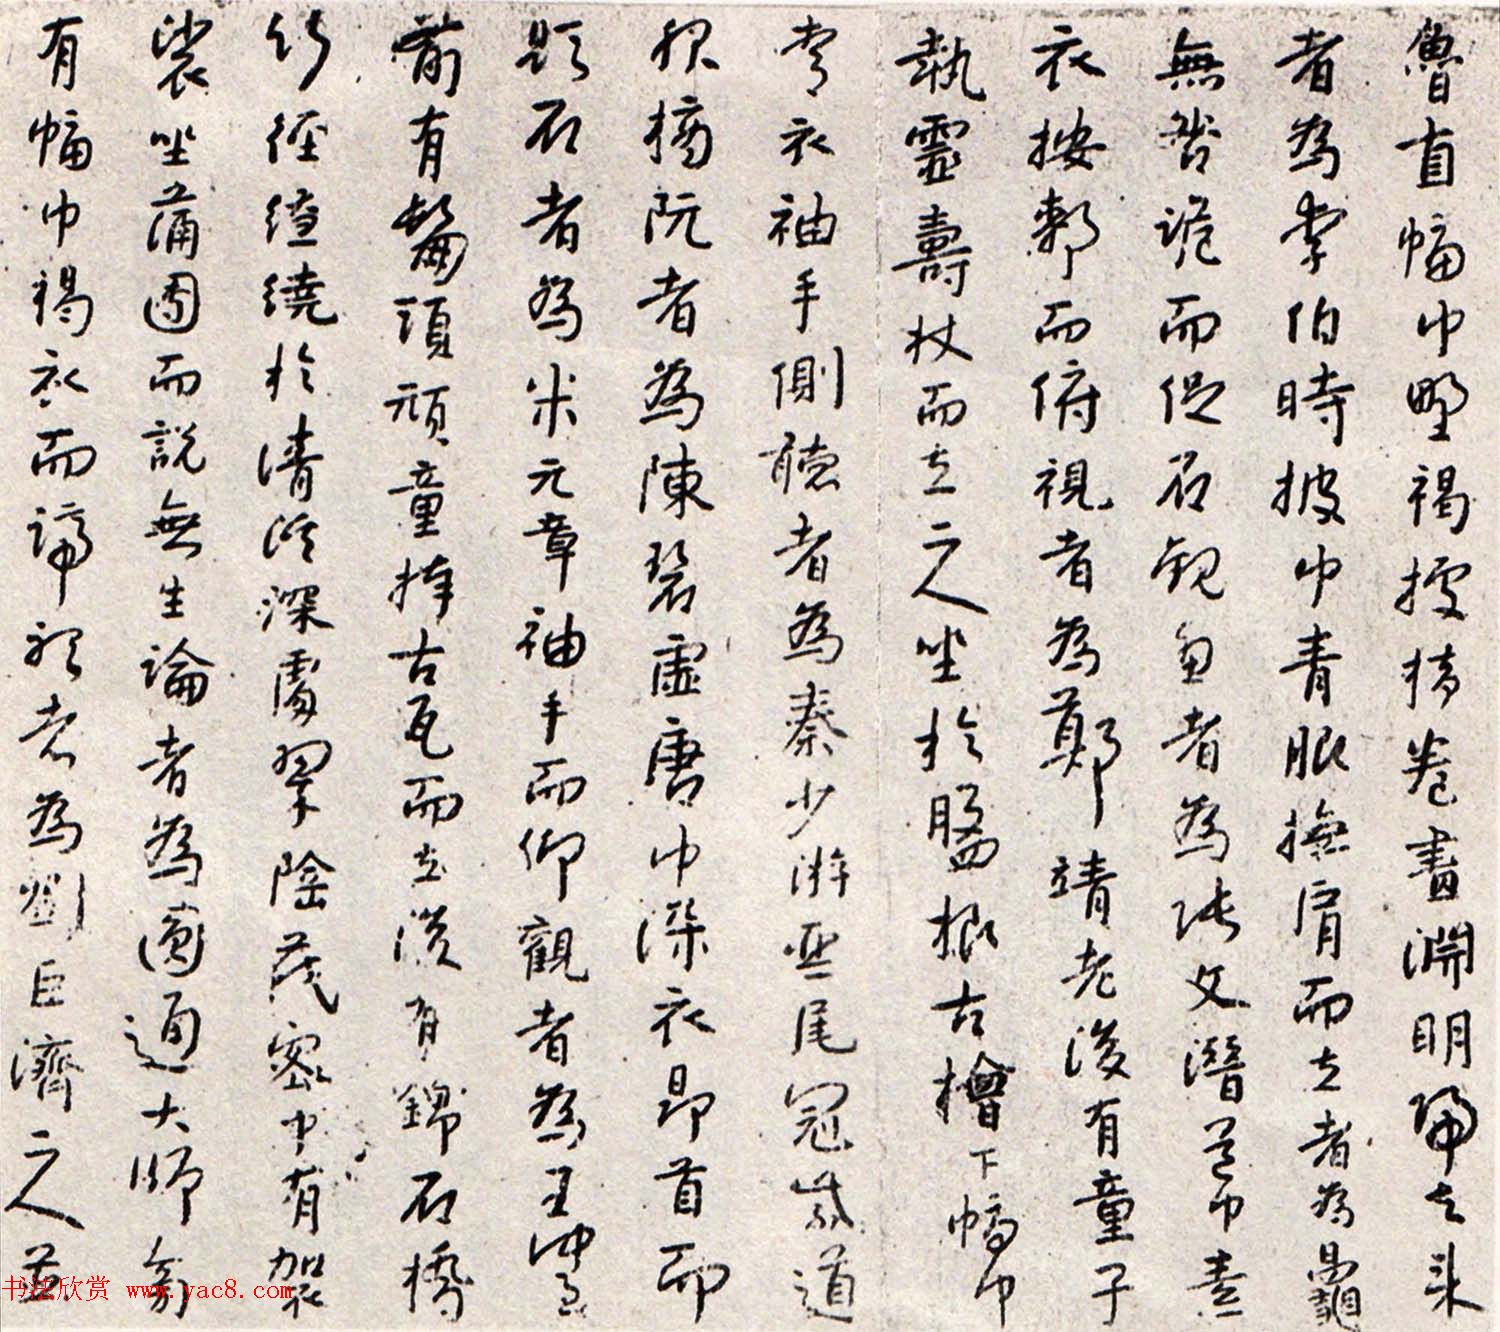 魯直幅巾野褐據横卷畫淵明歸去来
者為李伯時披巾青服撫肩而立者為鼂
無咎跪而捉石觀畫者為張文潛道巾素
衣按膝而俯視者為鄭靖老後有童子
執靈壽杖而立二人坐於盤根古檜下幅巾
青衣袖手側聽者為秦少游琴尾冠紫道
服摘阮者為陳碧虛唐巾深衣昂首而
題石者為米元章袖手而仰觀者為王仲至
前有髯頭頑童捧古瓦而立後有錦石橋
竹徑繚繞於清溪深處翠陰茂密中有袈
裟坐蒲團而說無生論者為圓通大師旁
有幅巾褐衣而諦聽者為劉巨濟二人並
书法欣赏 www.yac8.com